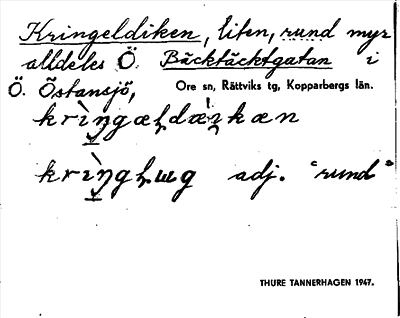 Kringeldiken, liten, rund myr
alldeles Ö. Bäcktäcktgatan i
Ö. Östansjö,
Ore sn, Rättviks tg, Kopparbergs län.
adj. "rund"
THURE TANNERHAGEN 1947.